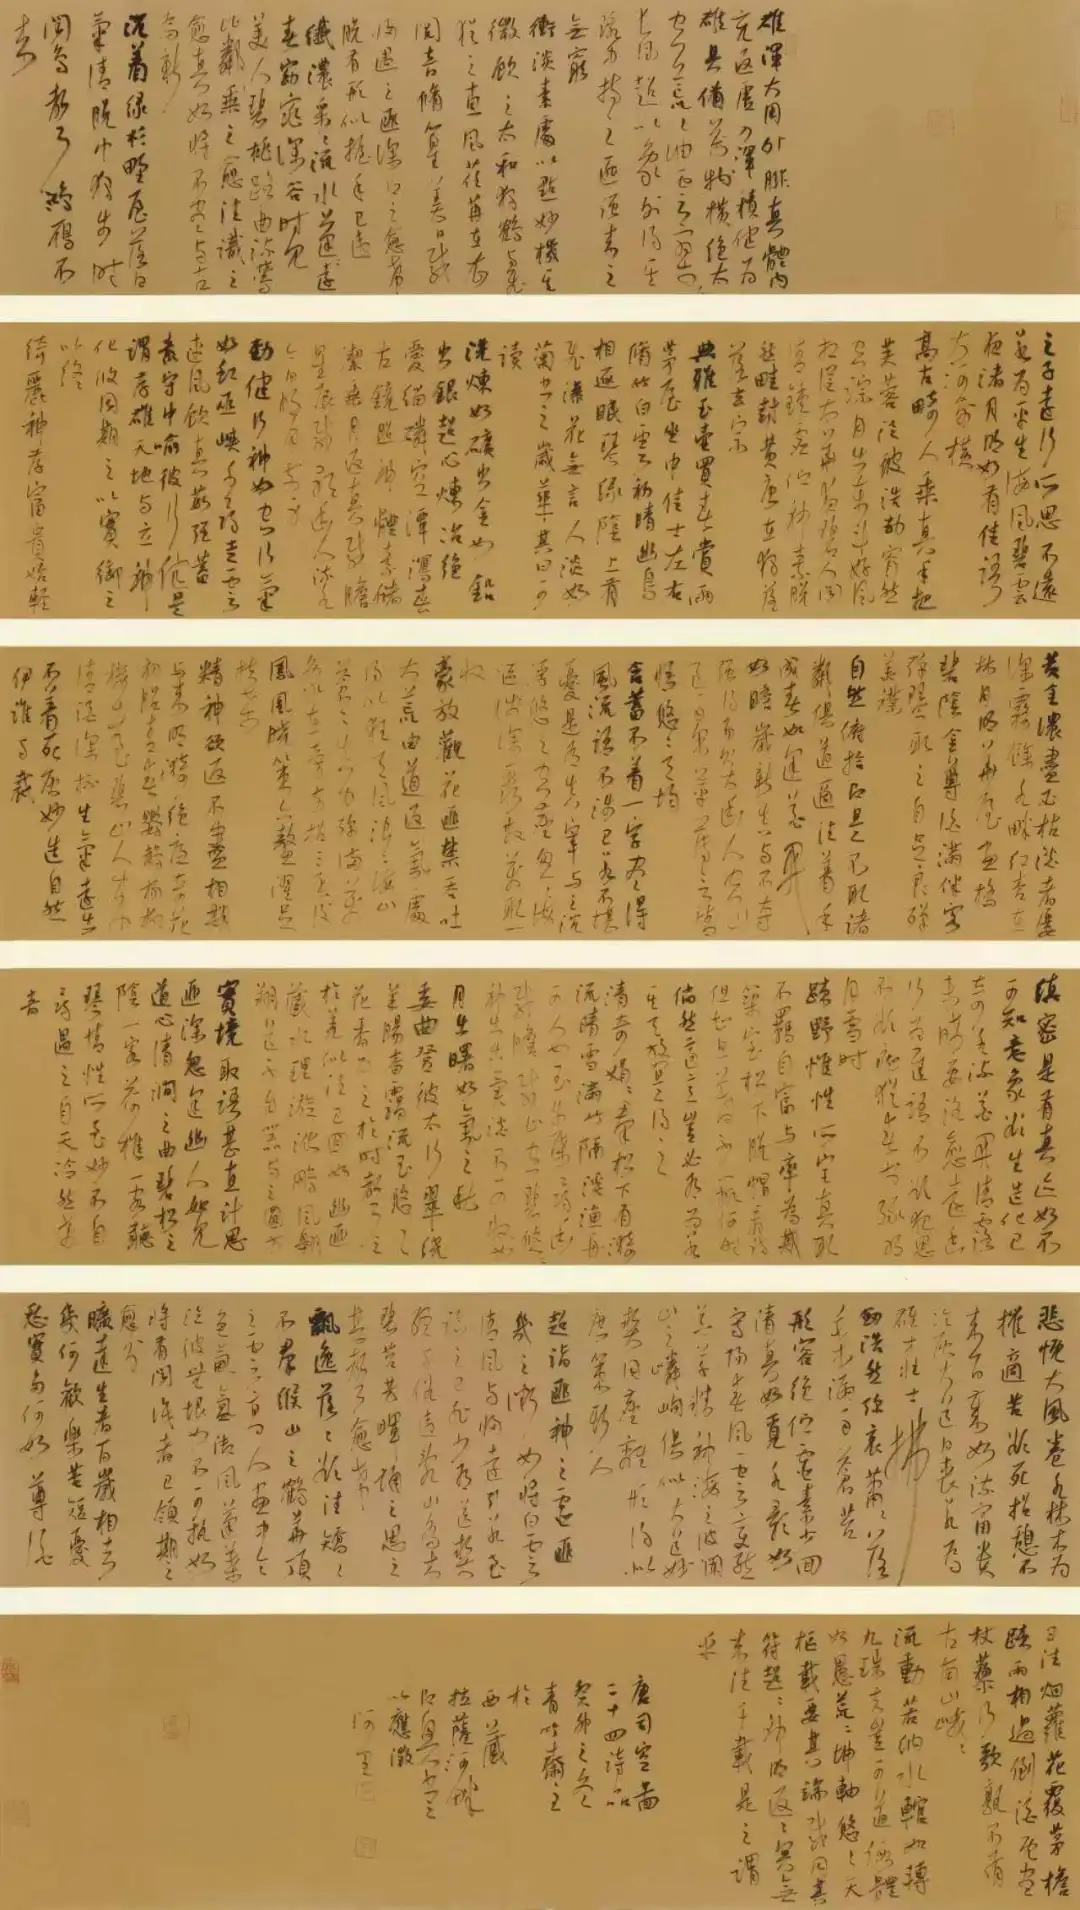 雄渾大用外腓真體內
充返虛入渾積健為
雄具備萬物橫絕太
空荒荒油雲寥寥
長風超以象外得其
環中持之匪強來之
無窮
沖淡素處以默妙機其
微飲之太和獨鶴與飛
猶之惠風荏苒在衣
閱音脩篁美曰載
歸遇之匪深即之愈希
脫有形似握手已違
纖濃采采流水蓬蓬遠
春窈窕深谷時見
美人碧桃路曲流鶯
比鄰乘之愈往識之
愈真如將不盡與古
為新
沉着綠杉野屋落日
氣清脫巾獨步時
聞鳥聲鴻雁不
來
之子遠行所思不遠
若為平生海風碧雲
夜渚月明如有佳語
大河前橫
高古畸人乘真手把
芙蓉泛彼浩劫窅然
空蹤月出東斗好風
相從太華夜碧人聞
清鐘虛佇神素脫
然畦封黃唐在獨落
落玄宗
典雅玉壺買春賞雨
茅屋坐中佳士左右
脩竹白雲初晴幽鳥
相逐眠琴綠陰上有
飛瀑落花無言人淡如
菊書之歲華其曰可
讀
洗煉如礦出金如鉛
出銀超心煉冶絕
愛緇磷空潭瀉春
古鏡照神體素儲
潔乘月返真載瞻
星辰載歌幽人流水
今日明月前身
勁健行神如空行氣
如虹巫峽千尋走雲
連風飲真茹強蓄
素守中喻彼行健是
謂存雄天地與立神
化攸同期之以實御之
以終
綺麗神存富貴始輕
黃金濃盡必枯淡者屢
深霧餘水畔紅杏在
林月明華屋畫橋
碧陰金尊酒滿伴客
彈琴取之自足良殫
美襟
自然俯拾即是不取諸
鄰俱道適往着手
成春如逢花開
如瞻歲新真與不奪
強得易貧幽人空山
過雨采蘋薄言情
悟悠悠天鈞
含蓄不着一字盡得
風流語不涉己若不堪
憂是有真宰與之沉
浮悠悠空塵忽忽海
漚淺深聚散萬取一
收
豪放觀花匪禁吞吐
大荒由道返氣處
得以狂天風浪浪海山
蒼蒼真力彌滿萬
象在旁前招三辰後引
鳳凰曉策六鰲濯足
扶桑
精神欲返不盡相期
與來明漪絕底奇花
初胎青春鸚鵡楊柳
樓臺碧山人來
清酒深杯生氣遠出
不着死灰妙造自然
伊誰與裁
縝密是有真跡如不
可知意象欲生造化已
奇水流花開清露
未晞要路愈遠幽
行為遲語不欲犯思
不欲癡猶春於綠明
月雪時
疏野惟性所宅真取
不羈自富與率為期
築室松下脫帽看詩
但知旦暮不辨何時
倘然適意豈必有為若
其天放得之
清奇娟娟群松下有漪
流晴雪滿竹隔溪漁舟
可人如玉步屧尋幽
載瞻載止空碧悠悠
神出古異淡不可收如
月之曙如氣之秋
委曲登彼太行翠繞
羊腸杳靄流玉悠悠
花香力之於時聲之
於羌似往已回如幽匪
藏水理漩洑鵬風翱
翔道不自器與之圓方
實境取語甚直計思
匪深忽逢幽人如見
道心清澗之曲碧松之
陰一客荷樵一客聽
琴情性所至妙不自
尋遇之自天泠然希
音
悲慨大風卷水林木為
摧適苦欲死招憩不
來百歲如流富貴
冷灰大道日喪若為
雄才壯士拂
劍浩然彌哀蕭蕭落
葉漏雨蒼苔
形容絕佇靈素少回
清真如覓水影如
寫陽春風雲變態
花草精神海之波瀾
山之嶙峋俱似大道妙
契同塵離形得似
庶幾斯人
超詣匪神之靈匪
幾之微如將白雲
清風與歸遠引若至
臨之已非少有道契
終與俗違亂山喬木
碧苔芳暉誦之思之
其聲愈希
飄逸落落欲往矯矯
不群緱山之鶴華頂
之雲高人畫中令
色氤氳御風蓬葉
泛彼無垠如不可執如
將有聞識者已領期之
愈分
曠達生者百歲相去
幾何歡樂苦短憂
愁實多何如尊酒
日往煙蘿花覆茅檐
疏雨相過倒酒既盡
杖藜行歌孰不有
古南山峨峨
流動若納水輨如轉
丸珠夫豈可道假體
如愚荒荒坤軸悠悠天
樞載要其端載同其
符超超神明返返冥無
來往千載是之謂
乎
唐司空圖
二十四詩品
癸卯之冬
於
西藏
拉薩河畔
以應徵